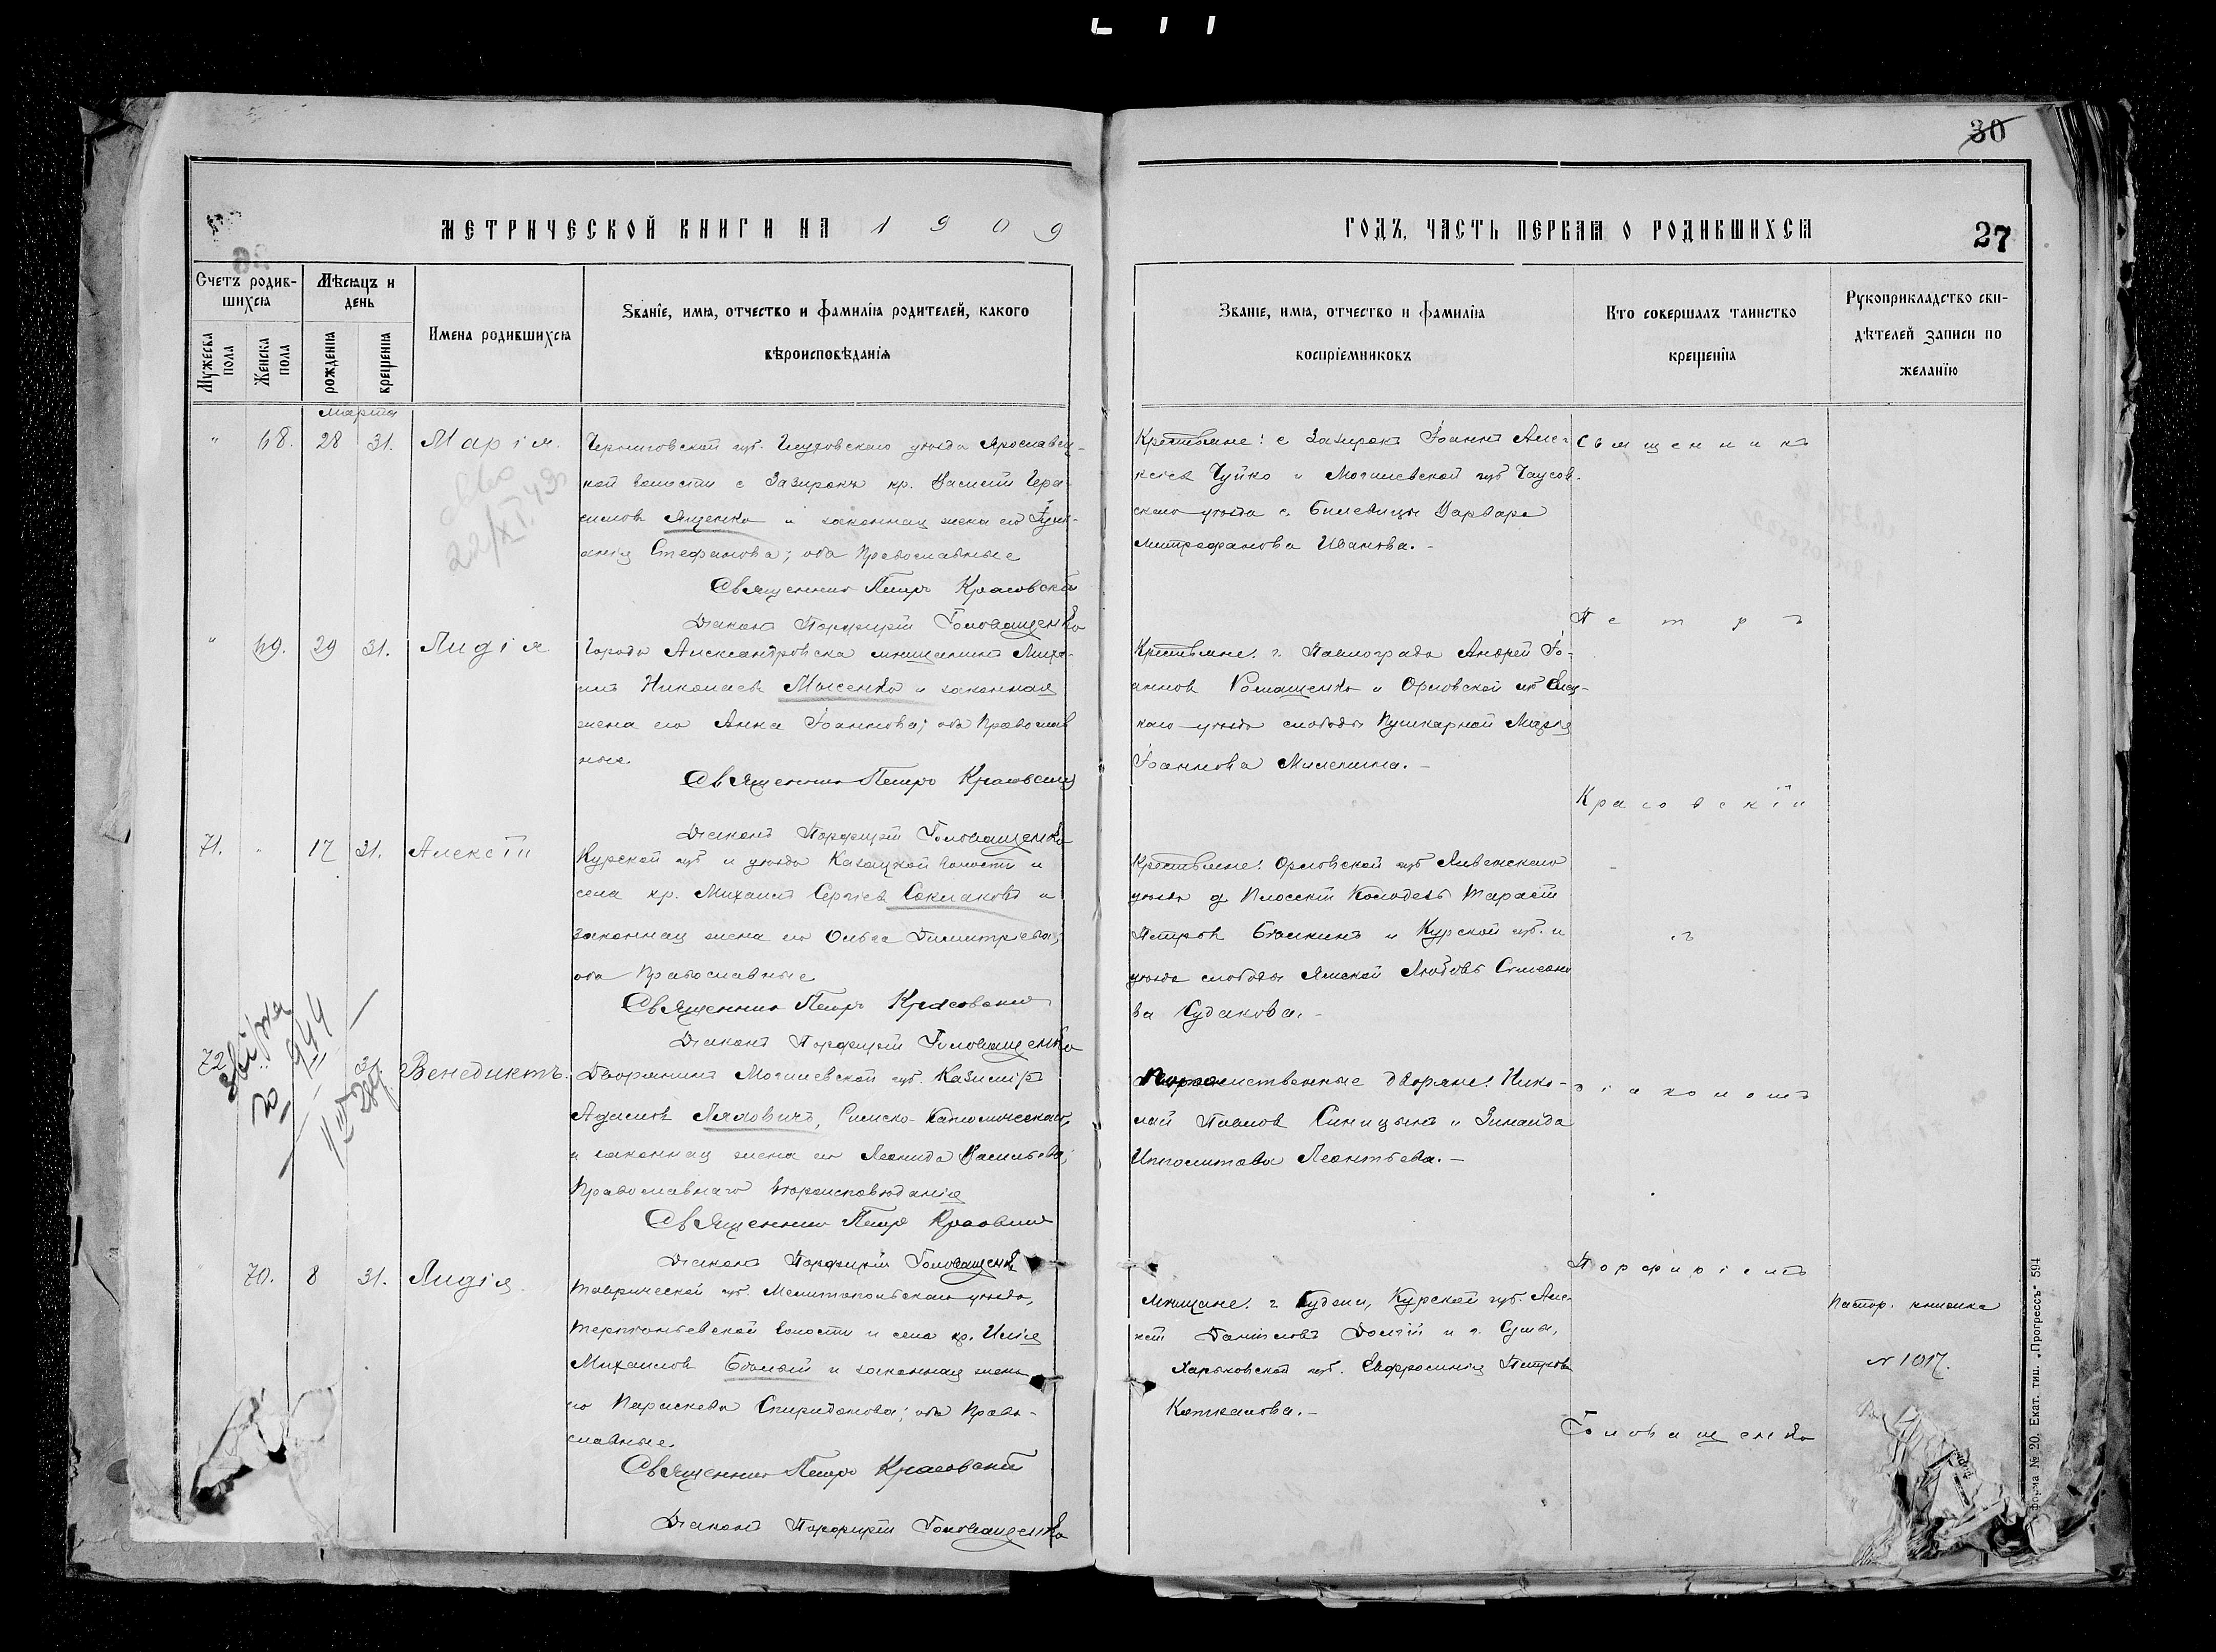 30
МЕТРИЧЕСКОЙ КНИГИ НА 1909
ГОДЪ, ЧАСТЬ ПЕРВАЯ О РОДИВШИХСЯ
27
Счетъ родив-
шихся
Мужеска пола
Женска пола
Мѣсяцъ и
день
рожденія
крещенія
Имена родившихся
Званіе, имя, отчество и фамилія родителей, какого
вѣроисповѣданія
Званіе, имя, отчество и фамилія
воспріемниковъ
Кто совершалъ таинство
крещенія
Рукоприкладство сви-
дѣтелей записи по
желанію
Марта
" 68. 28 31. Марія.
Черниговской губ. Глуховскаго уѣзда Ярославец-
кой волости с. Зазирокъ кр. Василій Гера-
симовъ Ященко и законная жена его Іули-
анія Стефанова; оба Православные
Священникъ Петръ Красовскій
Діаконъ Порфирій Головащенко
Крестьяне: с. Зазирокъ Іоаннъ Але-
ксіевъ Чуйко и Могилевской губ. Чаусов-
скаго уѣзда с. Билевицы Варвара
Митрофанова Иванова. -
Священникъ
Петръ
Красовскій
22/XI 43
" 69. 29 31. Лидія
Города Александровска мѣщанинъ Миха-
илъ Николаевъ Мысенко и законная
жена его Анна Іоаннова; оба Православ
ные.
Священникъ Петръ Красовскій
Діаконъ Порфирій Головащенко
Крестьяне: г. Павлограда Андрей Іо-
анновъ Ромащенко и Орловской губ. Елец-
каго уѣзда слободы Пушкарной Марія
Іоаннова Милехина. -
71. " 17 31. Алексій
Курской губ. и уѣзда Казацкой волости и
села кр. Михаилъ Сергіевъ Соклаковъ и
законная жена его Ольга Димитріева;
оба Православные
Священникъ Петръ Красовскій
Діаконъ Порфирій Головащенко
Крестьяне: Орловской губ. Ливенскаго
уѣзда д. Плосскій Колодезь Тарасій
Петровъ Бѣлкинъ и Курской губ. и
уѣзда слободы Ямской Любовь Симеоно
ва Судакова. -
съ
72. 31. Венедиктъ.
Дворянинъ Могилевской губ. Казиміръ
Адамовъ Ляховичъ, Римско-Католическаго,
и законная жена его Леонида Васильева,
Православнаго вѣроисповѣданія
Священникъ Петръ Красовскій
Діаконъ Порфирій Головащенко
Потомственные дворяне: Нико-
лай Павловъ Синицынъ и Зинаида
Ипполитова Леонтьева. -
діакономъ
Порфиріемъ
Головащенко
" 70. 8 31. Лидія.
Таврической губ. Мелитопольскаго уѣзда,
Терпѣньевской волости и села кр. Илія
Михаиловъ Бѣлый и законная жена
его Параскева Спиридонова; оба Право-
славные.
Священникъ Петръ Красовскій
Діаконъ Порфирій Головащенко
Мѣщане: г. Суджи, Курской губ. Але-
ксій Даніиловъ Долгій и г. Сумы,
Харьковской губ. Евфросинія Петрова
Коткалова. -
№ 1017.
Форма № 20. Екат. тип. „Прогрессъ“ 594